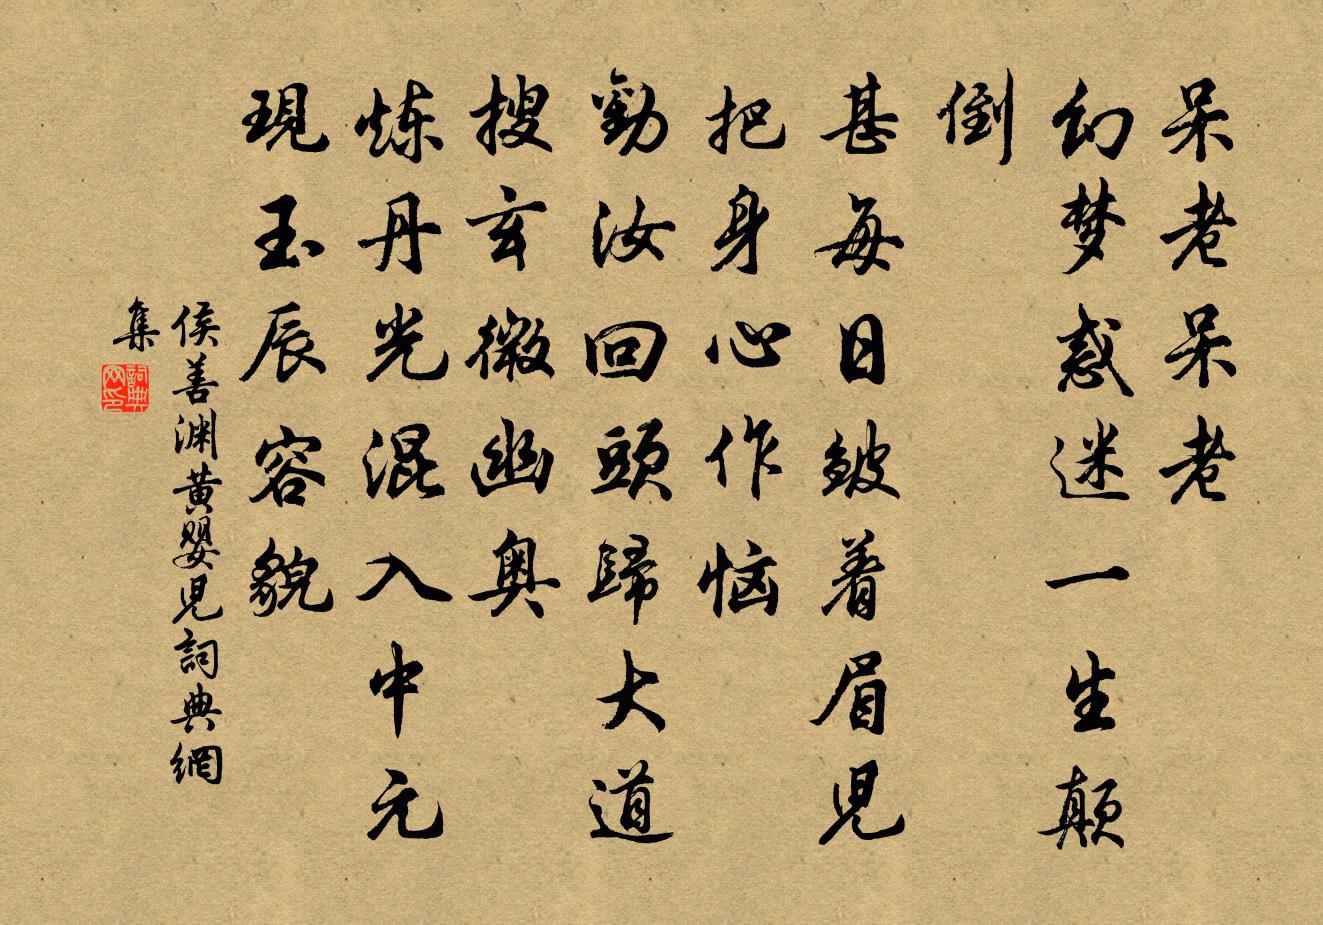 呆老呆老
幻梦惑迷一生颠
倒
甚每日皴着眉児
把身心作恼
勸汝回頭歸大道
搜玄微幽奥
炼丹光混入中元
現玉辰容貌
侯善渊黄婴児詞典網
集
詞典
网印